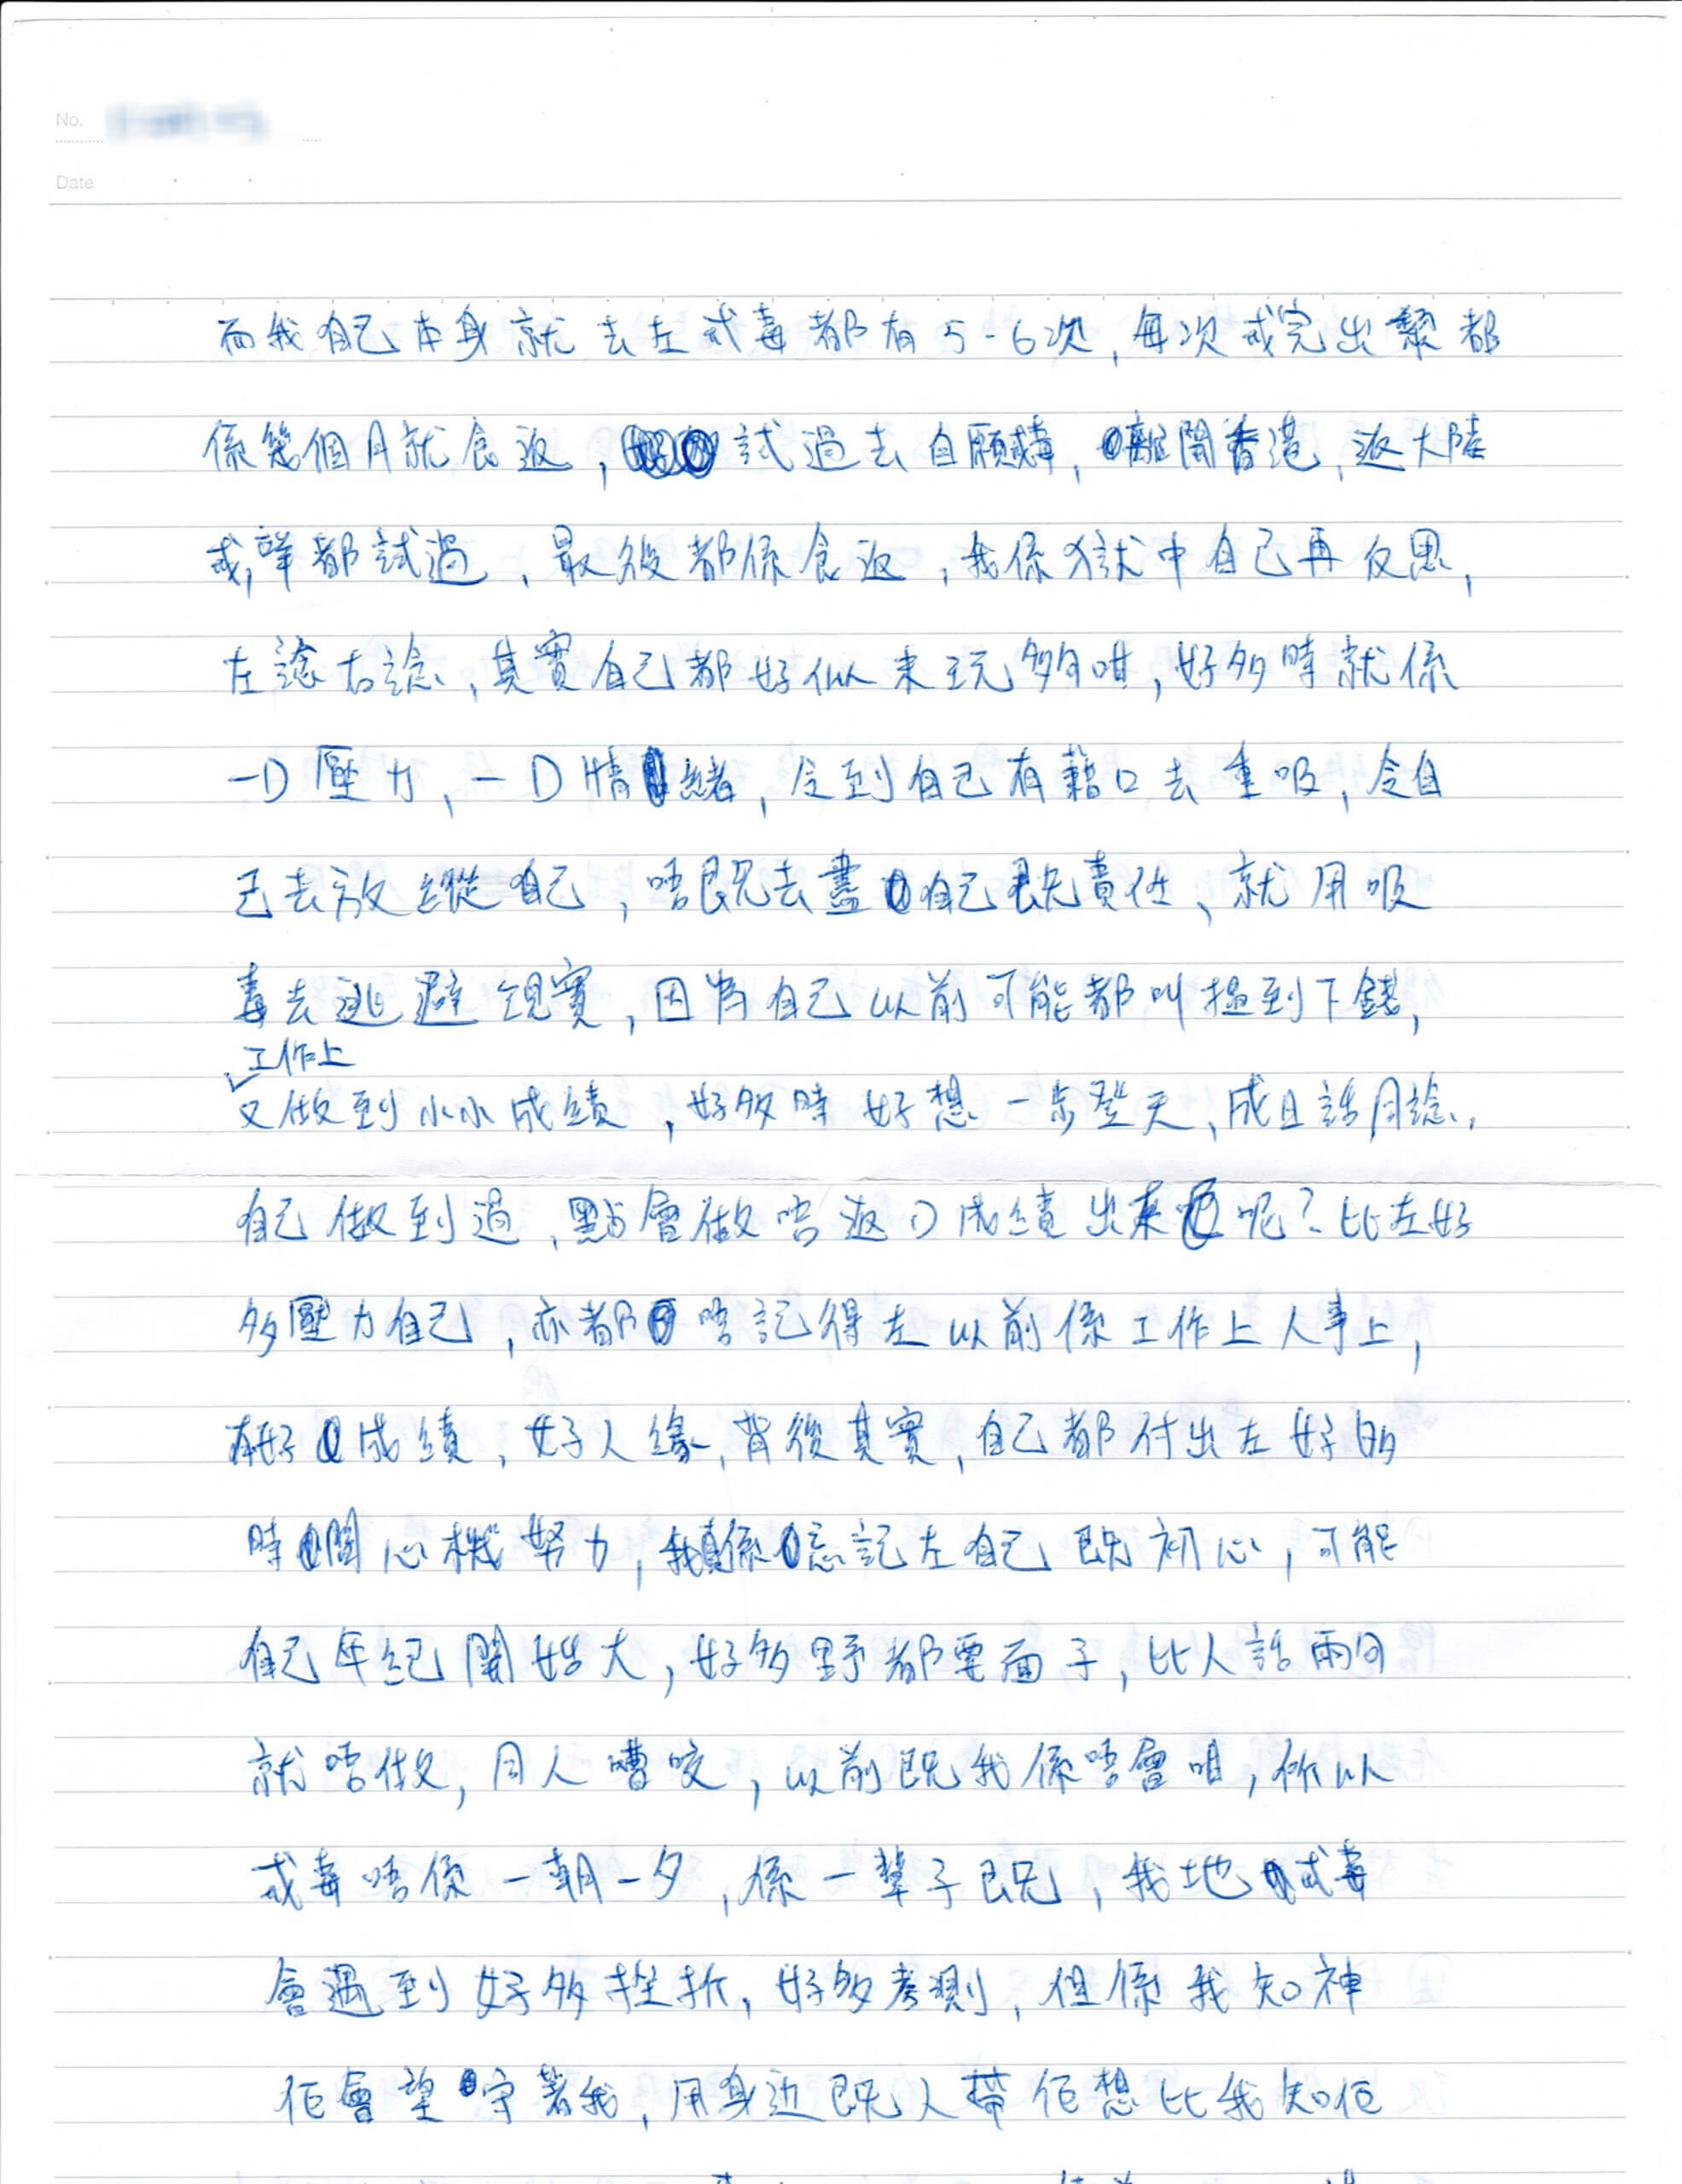 No.
Date
而我自己本身就去左戒毒都有5-6次,每次戒完出黎都
係幾個月就食返,試過去自願戒毒,離開香港,返大陸
戒,咩都試過、最後都係食返,我係獄中自己再反思,
左諗右諗,其實自己都好似未玩夠咁,好多時就係
一D壓力,一D情緒,令到自己有藉口去重吸,令自
己去放縱自己,唔既去盡自己既責任、就用吸
毒去逃避現實,因為自己以前可能都叫搵到下錢,
工作上
又做到小小成績,好多時好想一步登天、成日話同諗,
自己做到過,點會做唔返D成績出來呢?比左好
多壓力自己,亦都唔記得左以前係工作上人事上,
有好成績,好人緣,背後其實,自己都付出左好多
時間心機努力,我真係忘記左自己既初心,可能
自己年紀開始大,好多野都要面子,比人話兩句
就唔做,同人嘈咬,以前既我係唔會咁,所以
戒毒唔係一朝一夕,係一輩子既,我地戒毒
會遇到好多挫折,好多考測,但係我知神
佢會望守著我,用身边既人帶佢想比我知佢